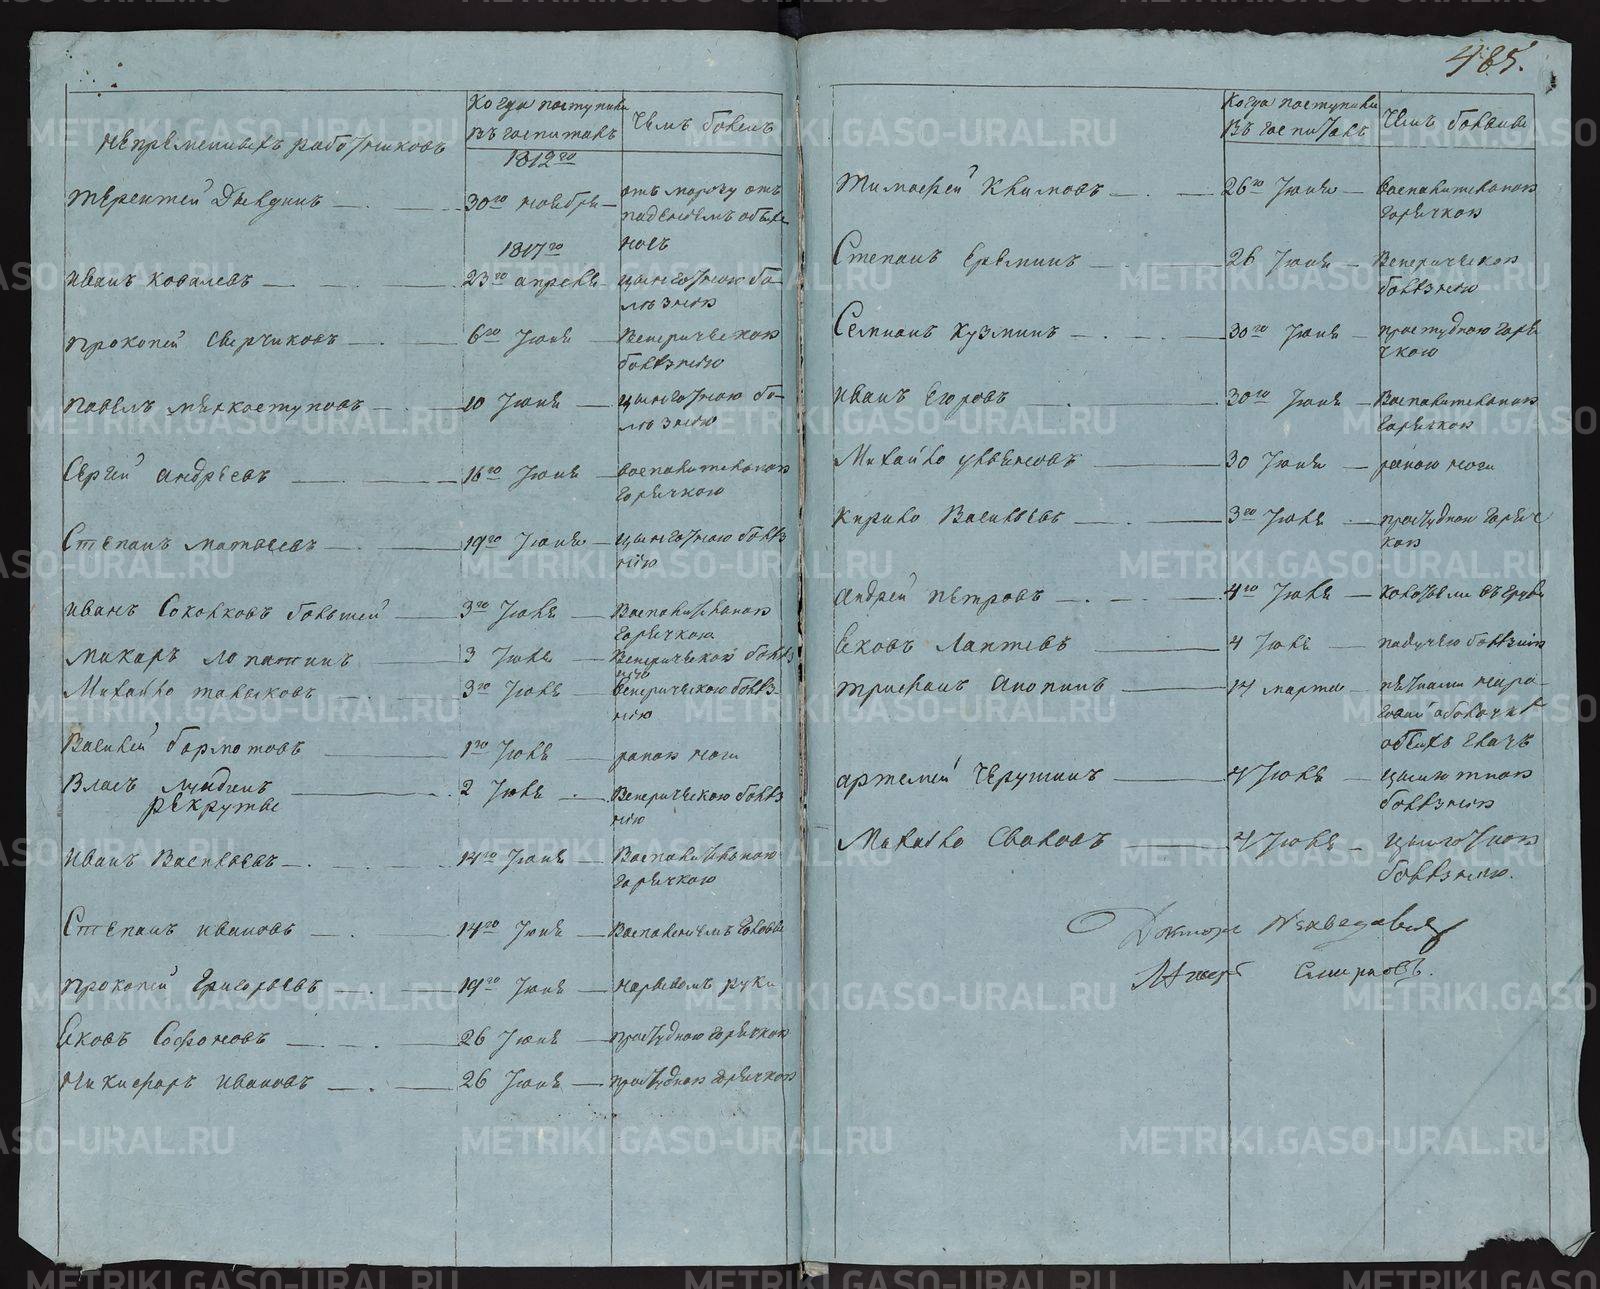 485.
Непременныхъ работниковъ
Когда поступили
Въ госпиталь
Чемъ боленъ
1812го
Терентей Дысдинъ 30го ноября отъ
падениемъ
1817го
Иванъ Ковалевъ 23го апреля цынготною бо-
лѣзнию
Прокопей Сверчковъ 6го Июня Венерическою
болѣзнию
Павелъ Мяхкоступовъ 10 Июня цынготною бо-
лѣзнию
Сергей Андреевъ 16го Июня воспалительною
горячкою
Степанъ Матвеевъ 19го Июня цынготною болѣз
нию
Иванъ Соколковъ болшей 3го Июля Воспалительною
горячкою
Макаръ Лопатинъ 3 Июля Венерической болѣз
нию
Михайло 3го Июля Венерическою болѣз-
нию
Василей Бормотовъ 1го Июля раною ноги
Власъ 2 Июля Венерическою болѣз
нию
Рекруты
Иванъ Васильевъ 14го Июня Воспалительною
горячкою
Степанъ Ивановъ 14го Июня Воспалениемъ
Прокопей Григорьевъ 19го Июня нарывомъ руки
Яковъ Софоновъ 26 Июня простудною горячкою
Никифоръ Ивановъ 26 Июня простудною горячкою
Когда поступили
Въ госпиталь
Чемъ больны
Тимофей Климовъ 26го Июня воспалительною
горячкою
Степанъ Ереминъ 26 Июня Венерическою
болѣзнию
Семионъ Кузминъ 30го Июня простудною горя
чкою
Иванъ Егоровъ 30го Июня Воспалительною
горячкою
Михайло 30 Июня раною ноги
Кирило Васильевъ 3го Июля простудною горяч
кою
Андрей Петровъ 4го Июля колотьемъ въ груди
Яковъ Лаптевъ 4 Июля падучею болѣзнию
Трифанъ Анопинъ 17 марта пятнами на ро-
говой оболочкѣ
обеихъ глазъ
Артемей Черушинъ 4 Июля цынготною
болѣзнию
Михайло Сваловъ 4 Июля цынготною
болѣзнию.
Докторъ
Лекарь Смирновъ.
METRIKI.GASO-URAL.RU